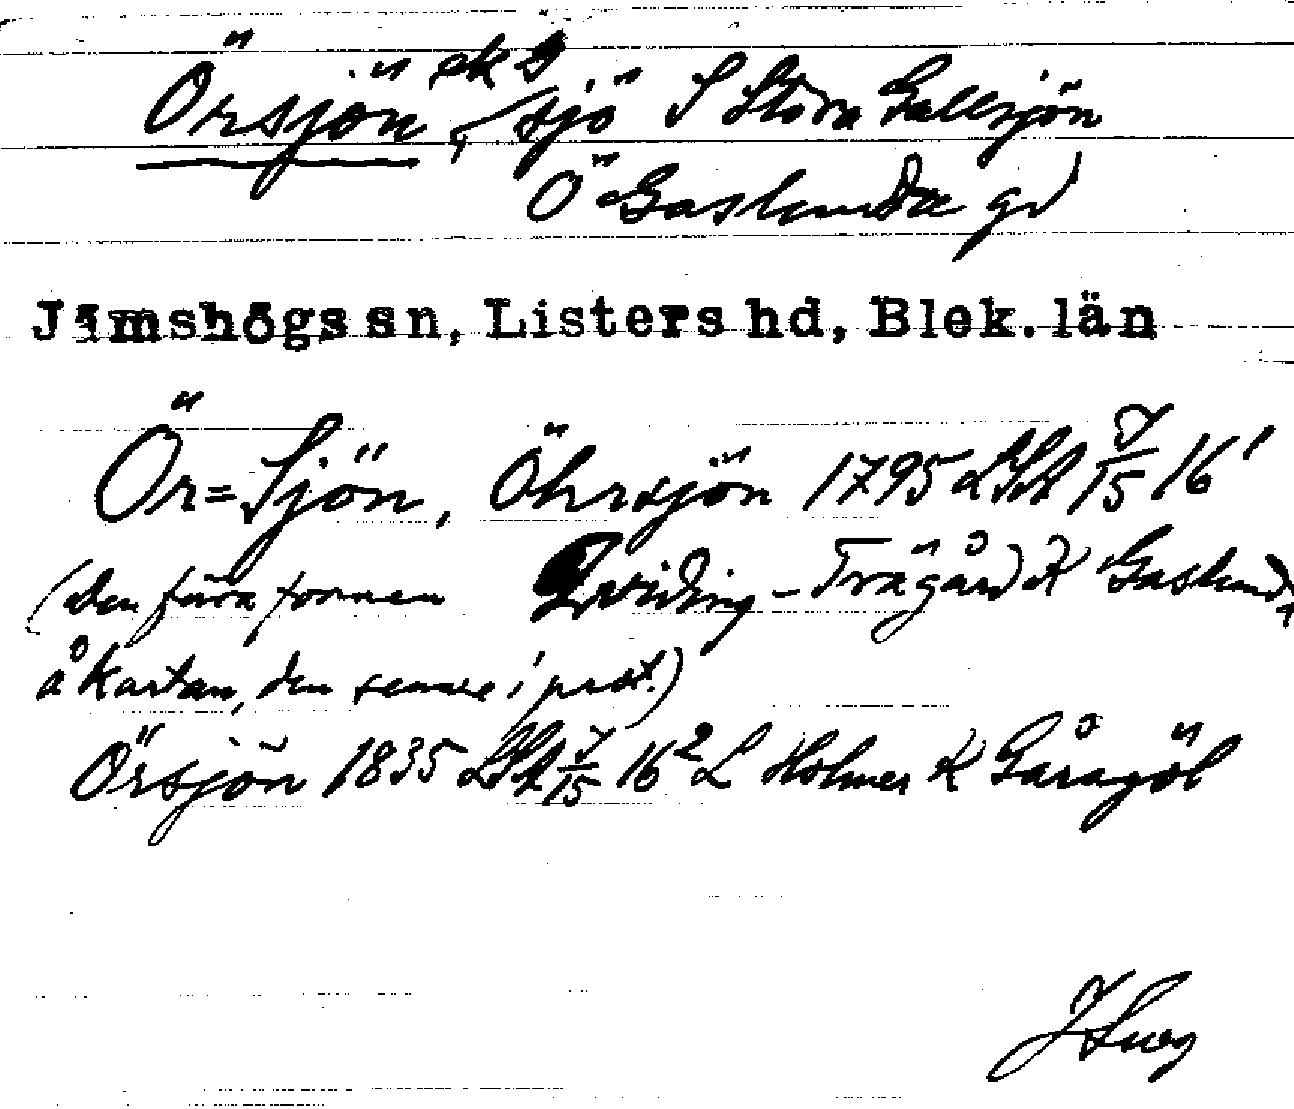 ek 9
Örsjön, sjö S Stora Gallsjön
Ö Gaslunda gd
Jämshögs sn, Listers hd, Blek. län
Ör=Sjön, Öhrsjön 1795 LSA 7/15 16¹
(den förra formen Qviding-Trägård K Gaslunda
å kartan, den senare i prot.)
Örsjön 1835 LSA 7/15 16² L Holmer K Gåragöl